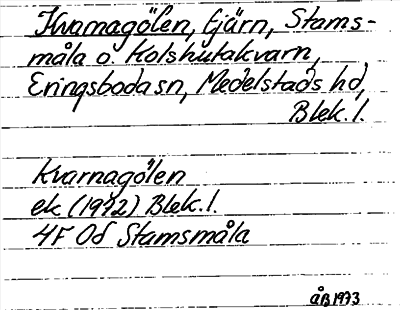 Kvarnagölen, tjärn, Stams-
måla o. Kolshutakvarn,
Eringsboda sn, Medelstads hd,
Blek. l.
Kvarnagölen
ek (1972) Blek. l.
4F 0d Stamsmåla
ÅB 1973